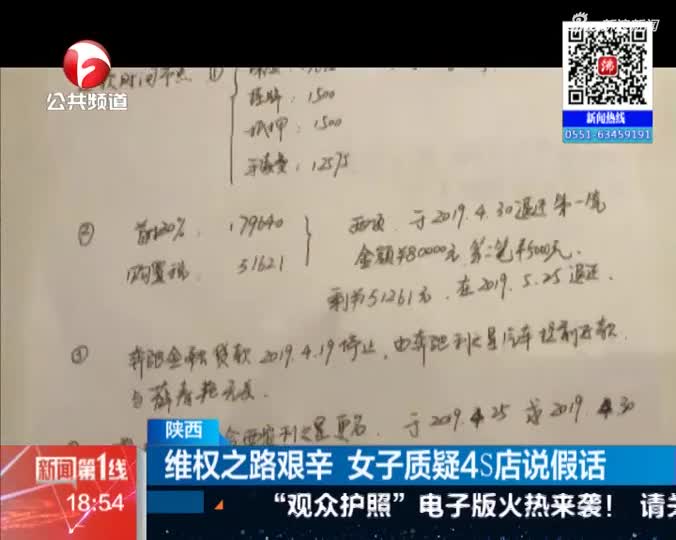 新浪新闻
公共频道
新闻热线
0551-63459191
时间节点 ①
1500
抵押：1500
手续费：12575
② 首付20%：179640
购置税 51621
两项，于2019.4.30退还第一笔
金额¥80000元，第二笔¥5000元.
剩余51261元，在2019.5.25退还.
③ 奔驰金融贷款2019.4.19停止，由奔驰利之星汽车提前还款.
与薛春艳无关.
西安利之星更名 于2019.4.25 或2019.4.30
陕西
新闻第1线
维权之路艰辛 女子质疑4S店说假话
18:54
“观众护照”电子版火热来袭！ 请关